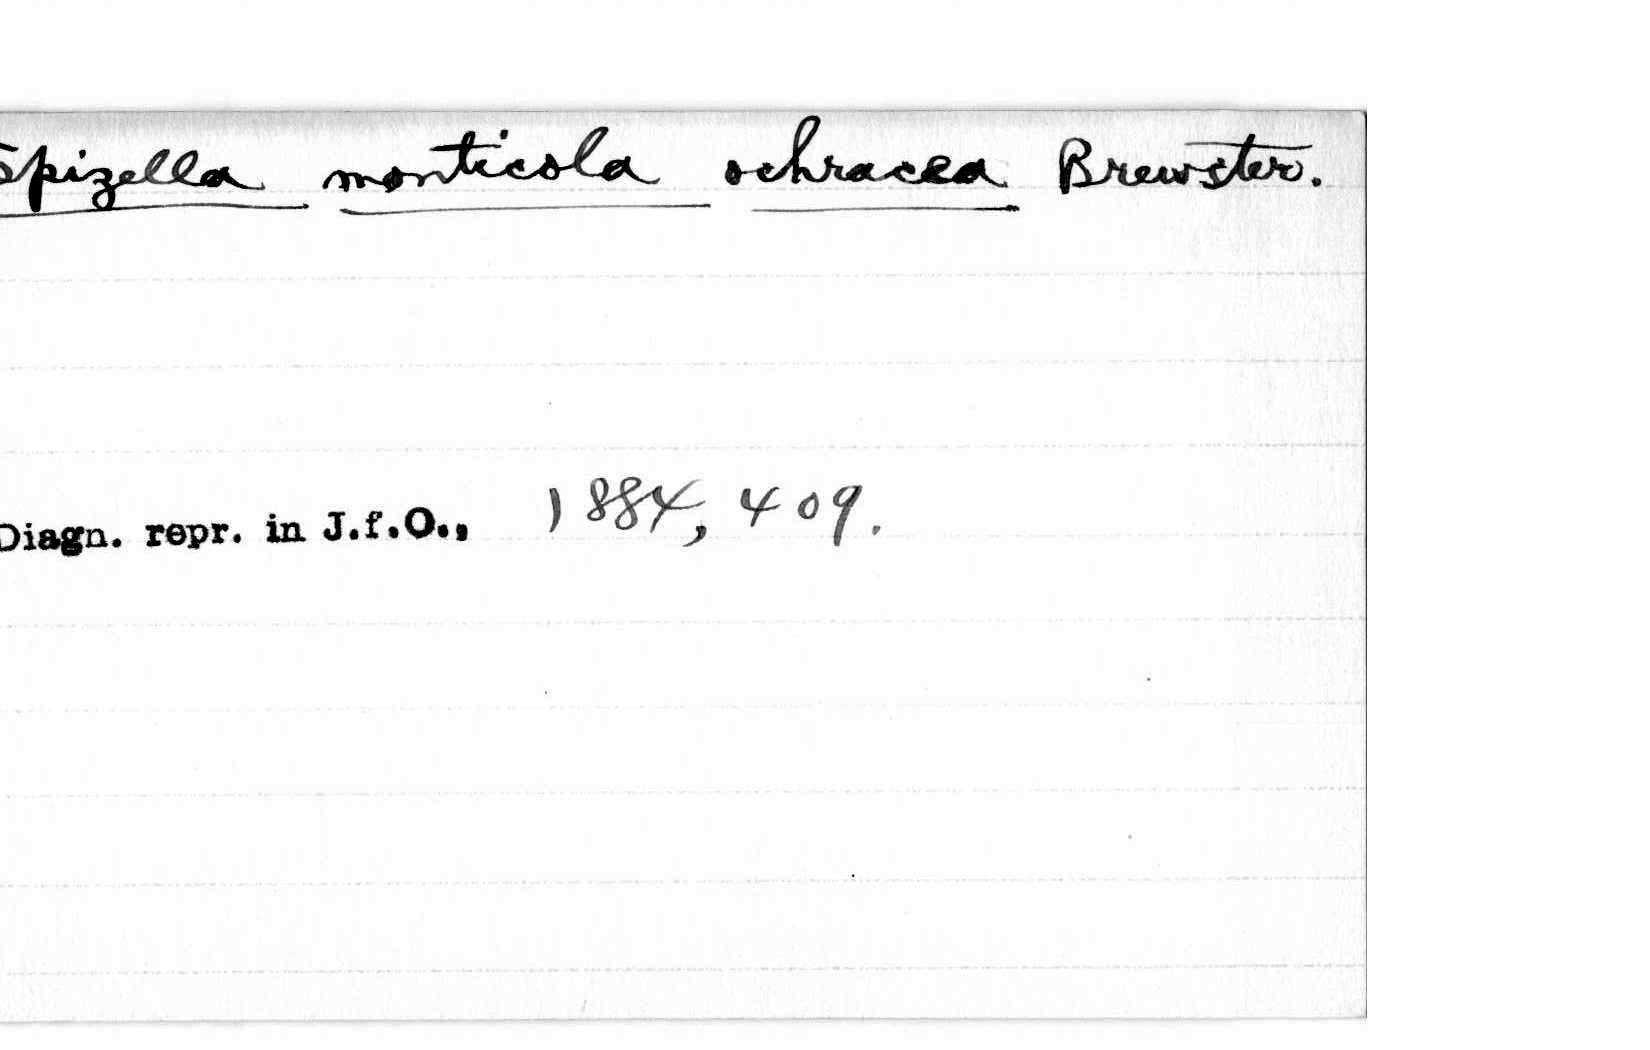 Spizella monticola ochracea Brewster.
Diagn. repr. in J.f.O., 1884, 409.